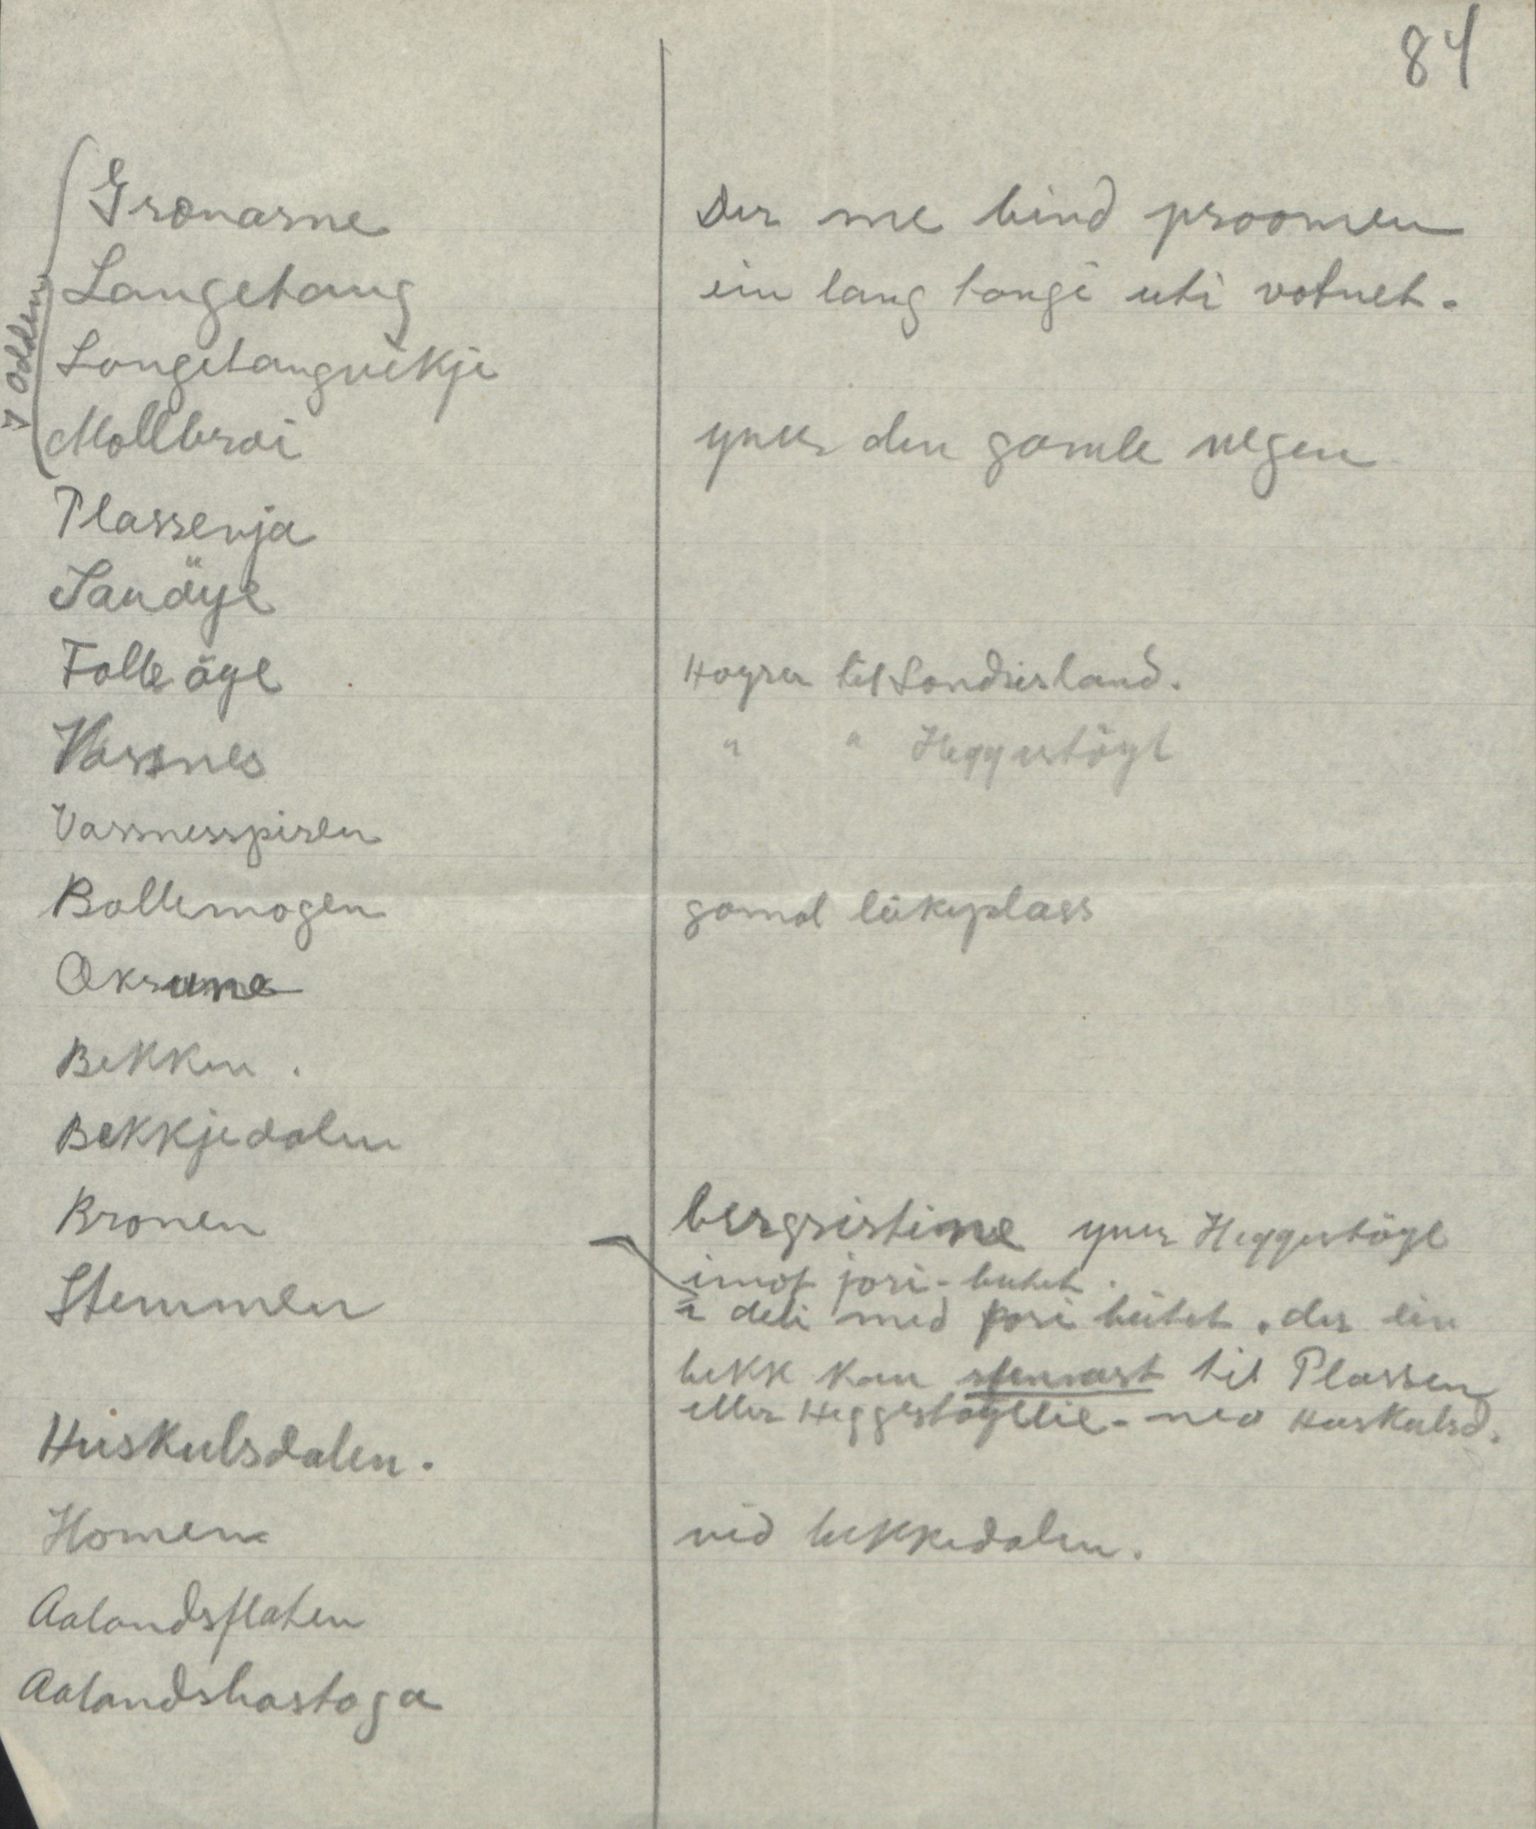 84
I odden
Grønarne Der me bind proomen
Langetang ein lang tange uti votnet.
Langetangvikje
Mollbroi yver den gamle vegen
Plassenja
Sandÿe
Folle öyl Höyrer til Sondresland.
Vassnes " " Heggestöyl
Vassnesspiren
Bollemogen gomol leikeplass
Oksrune
Bekken.
Bekkjedalen
Bronen bergristine yver Heggestöyl
imot jori-butet.
Stemmen i deli med jori bütet. der ein
bekk kan stennast til Plassen
eller Heggestøyllie - neo Huskulsd.
Huskulsdalen.
Homen vid bekkedalen.
Aalandsflaten
Aalandshastoga